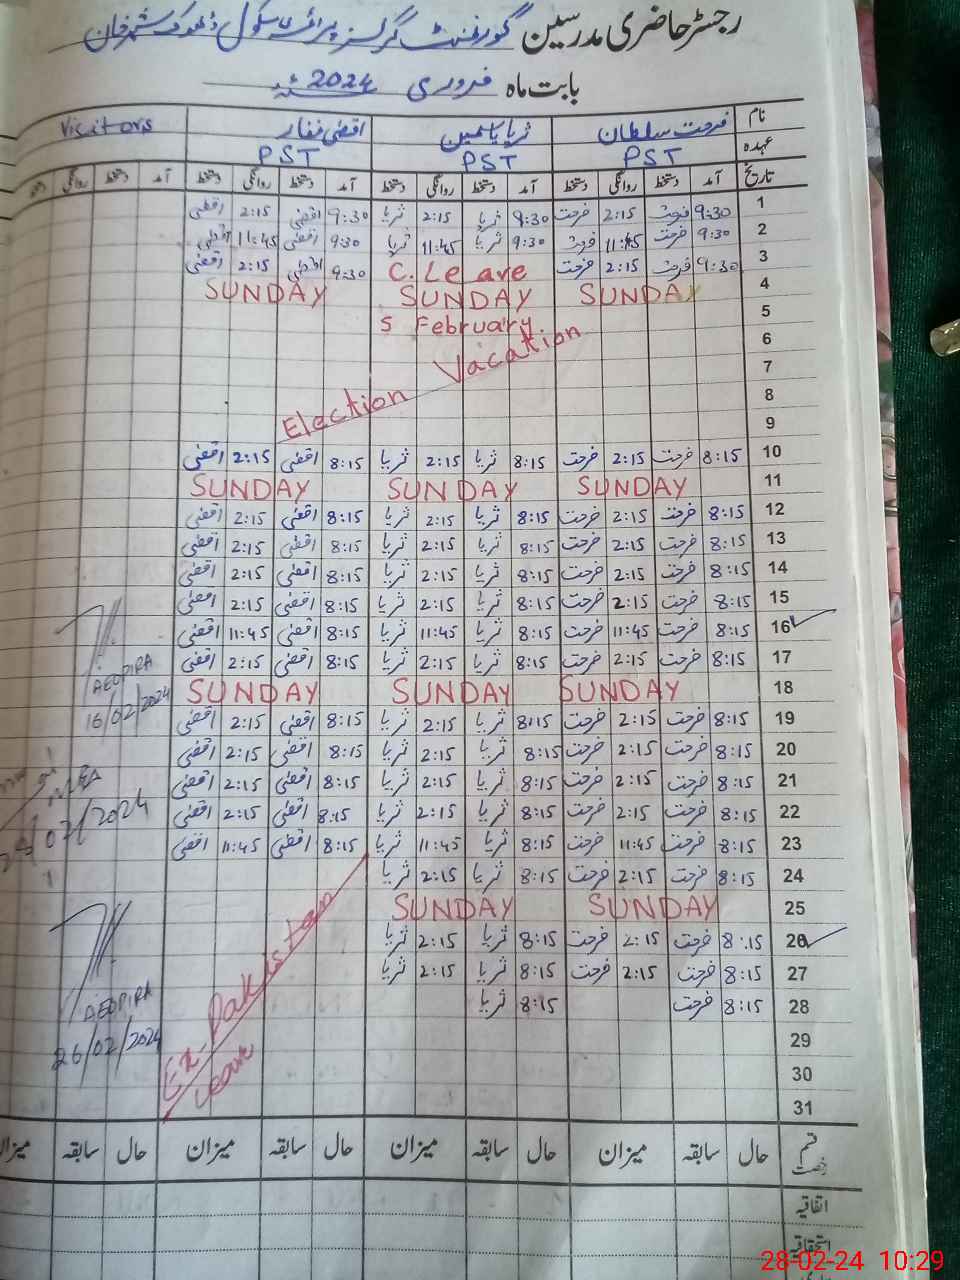 رجسٹر حاضری مدرسین گورنمنٹ گرلز پرائمری سکول ڈھوک شہمرخان
بابت ماہ فروری 2024ء
نام فرحت سلطان ثریا یاسمین اقضیٰ غفار Visitors
عہدہ PST PST PST
تاریخ آمد دستخط روانگی دستخط آمد دستخط روانگی دستخط آمد دستخط روانگی دستخط آمد دستخط روانگی دستخط
1 9:30 فرحت 2:15 فرحت 9:30 ثریا 2:15 ثریا 9:30 اقضیٰ 2:15 اقضیٰ
2 9:30 فرحت 11:45 فرحت 9:30 ثریا 11:45 ثریا 9:30 اقضیٰ 11:45 اقضیٰ
3 9:30 فرحت 2:15 فرحت C. Leave 9:30 اقضیٰ 2:15 اقضیٰ
4 SUNDAY SUNDAY SUNDAY
5 5 February
6 Election Vacation
7
8
9
10 8:15 فرحت 2:15 فرحت 8:15 ثریا 2:15 ثریا 8:15 اقضیٰ 2:15 اقضیٰ
11 SUNDAY SUNDAY SUNDAY
12 8:15 فرحت 2:15 فرحت 8:15 ثریا 2:15 ثریا 8:15 اقضیٰ 2:15 اقضیٰ
13 8:15 فرحت 2:15 فرحت 8:15 ثریا 2:15 ثریا 8:15 اقضیٰ 2:15 اقضیٰ
14 8:15 فرحت 2:15 فرحت 8:15 ثریا 2:15 ثریا 8:15 اقضیٰ 2:15 اقضیٰ
15 8:15 فرحت 2:15 فرحت 8:15 ثریا 2:15 ثریا 8:15 اقضیٰ 2:15 اقضیٰ
16 8:15 فرحت 11:45 فرحت 8:15 ثریا 11:45 ثریا 8:15 اقضیٰ 11:45 اقضیٰ
17 8:15 فرحت 2:15 فرحت 8:15 ثریا 2:15 ثریا 8:15 اقضیٰ 2:15 اقضیٰ AEOPIRA
18 SUNDAY SUNDAY SUNDAY 16/02/2024
19 8:15 فرحت 2:15 فرحت 8:15 ثریا 2:15 ثریا 8:15 اقضیٰ 2:15 اقضیٰ
20 8:15 فرحت 2:15 فرحت 8:15 ثریا 2:15 ثریا 8:15 اقضیٰ 2:15 اقضیٰ
21 8:15 فرحت 2:15 فرحت 8:15 ثریا 2:15 ثریا 8:15 اقضیٰ 2:15 اقضیٰ MEA
22 8:15 فرحت 2:15 فرحت 8:15 ثریا 2:15 ثریا 8:15 اقضیٰ 2:15 اقضیٰ /02/2024
23 8:15 فرحت 11:45 فرحت 8:15 ثریا 11:45 ثریا 8:15 اقضیٰ 11:45 اقضیٰ
24 8:15 فرحت 2:15 فرحت 8:15 ثریا 2:15 ثریا
25 SUNDAY SUNDAY
26 8:15 فرحت 2:15 فرحت 8:15 ثریا 2:15 ثریا
27 8:15 فرحت 2:15 فرحت 8:15 ثریا 2:15 ثریا
28 8:15 فرحت 8:15 ثریا Ex-Pakistan Leave AEOPIRA
29 26/02/2024
30
31
قسم رخصت حال سابقہ میزان حال سابقہ میزان حال سابقہ میزان حال سابقہ میزان
اتفاقیہ
استحقاقیہ
28-02-24 10:29